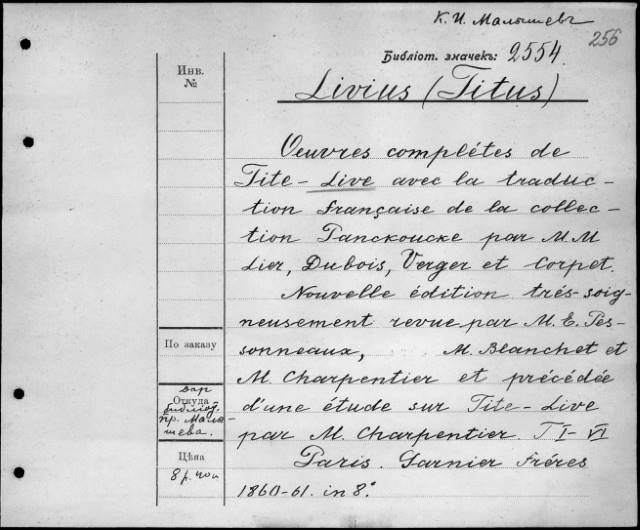 К. И. Малышевъ
256
Библіот. значекъ: 2554.
Инв.
№
Livius (Titus)
Oeuvres complétes de
Tite-Live avec la traduc-
tion française de la collec-
tion Panckoucke par M M
Lier, Dubois, Verger et Corpet.
Nouvelle édition trés-soig-
neusement revue par M. E. Pes-
sonneaux, M. Blanchet et
M. Charpentier et précédée
d'une étude sur Tite-Live
par M. Charpentier. T I-VI
Paris. Garnier Fréres
1860-61. in 8°.
По заказу
Дар
Откуда
библіот.
пр. Малы-
шева.
Цѣна
8 р. 40 к